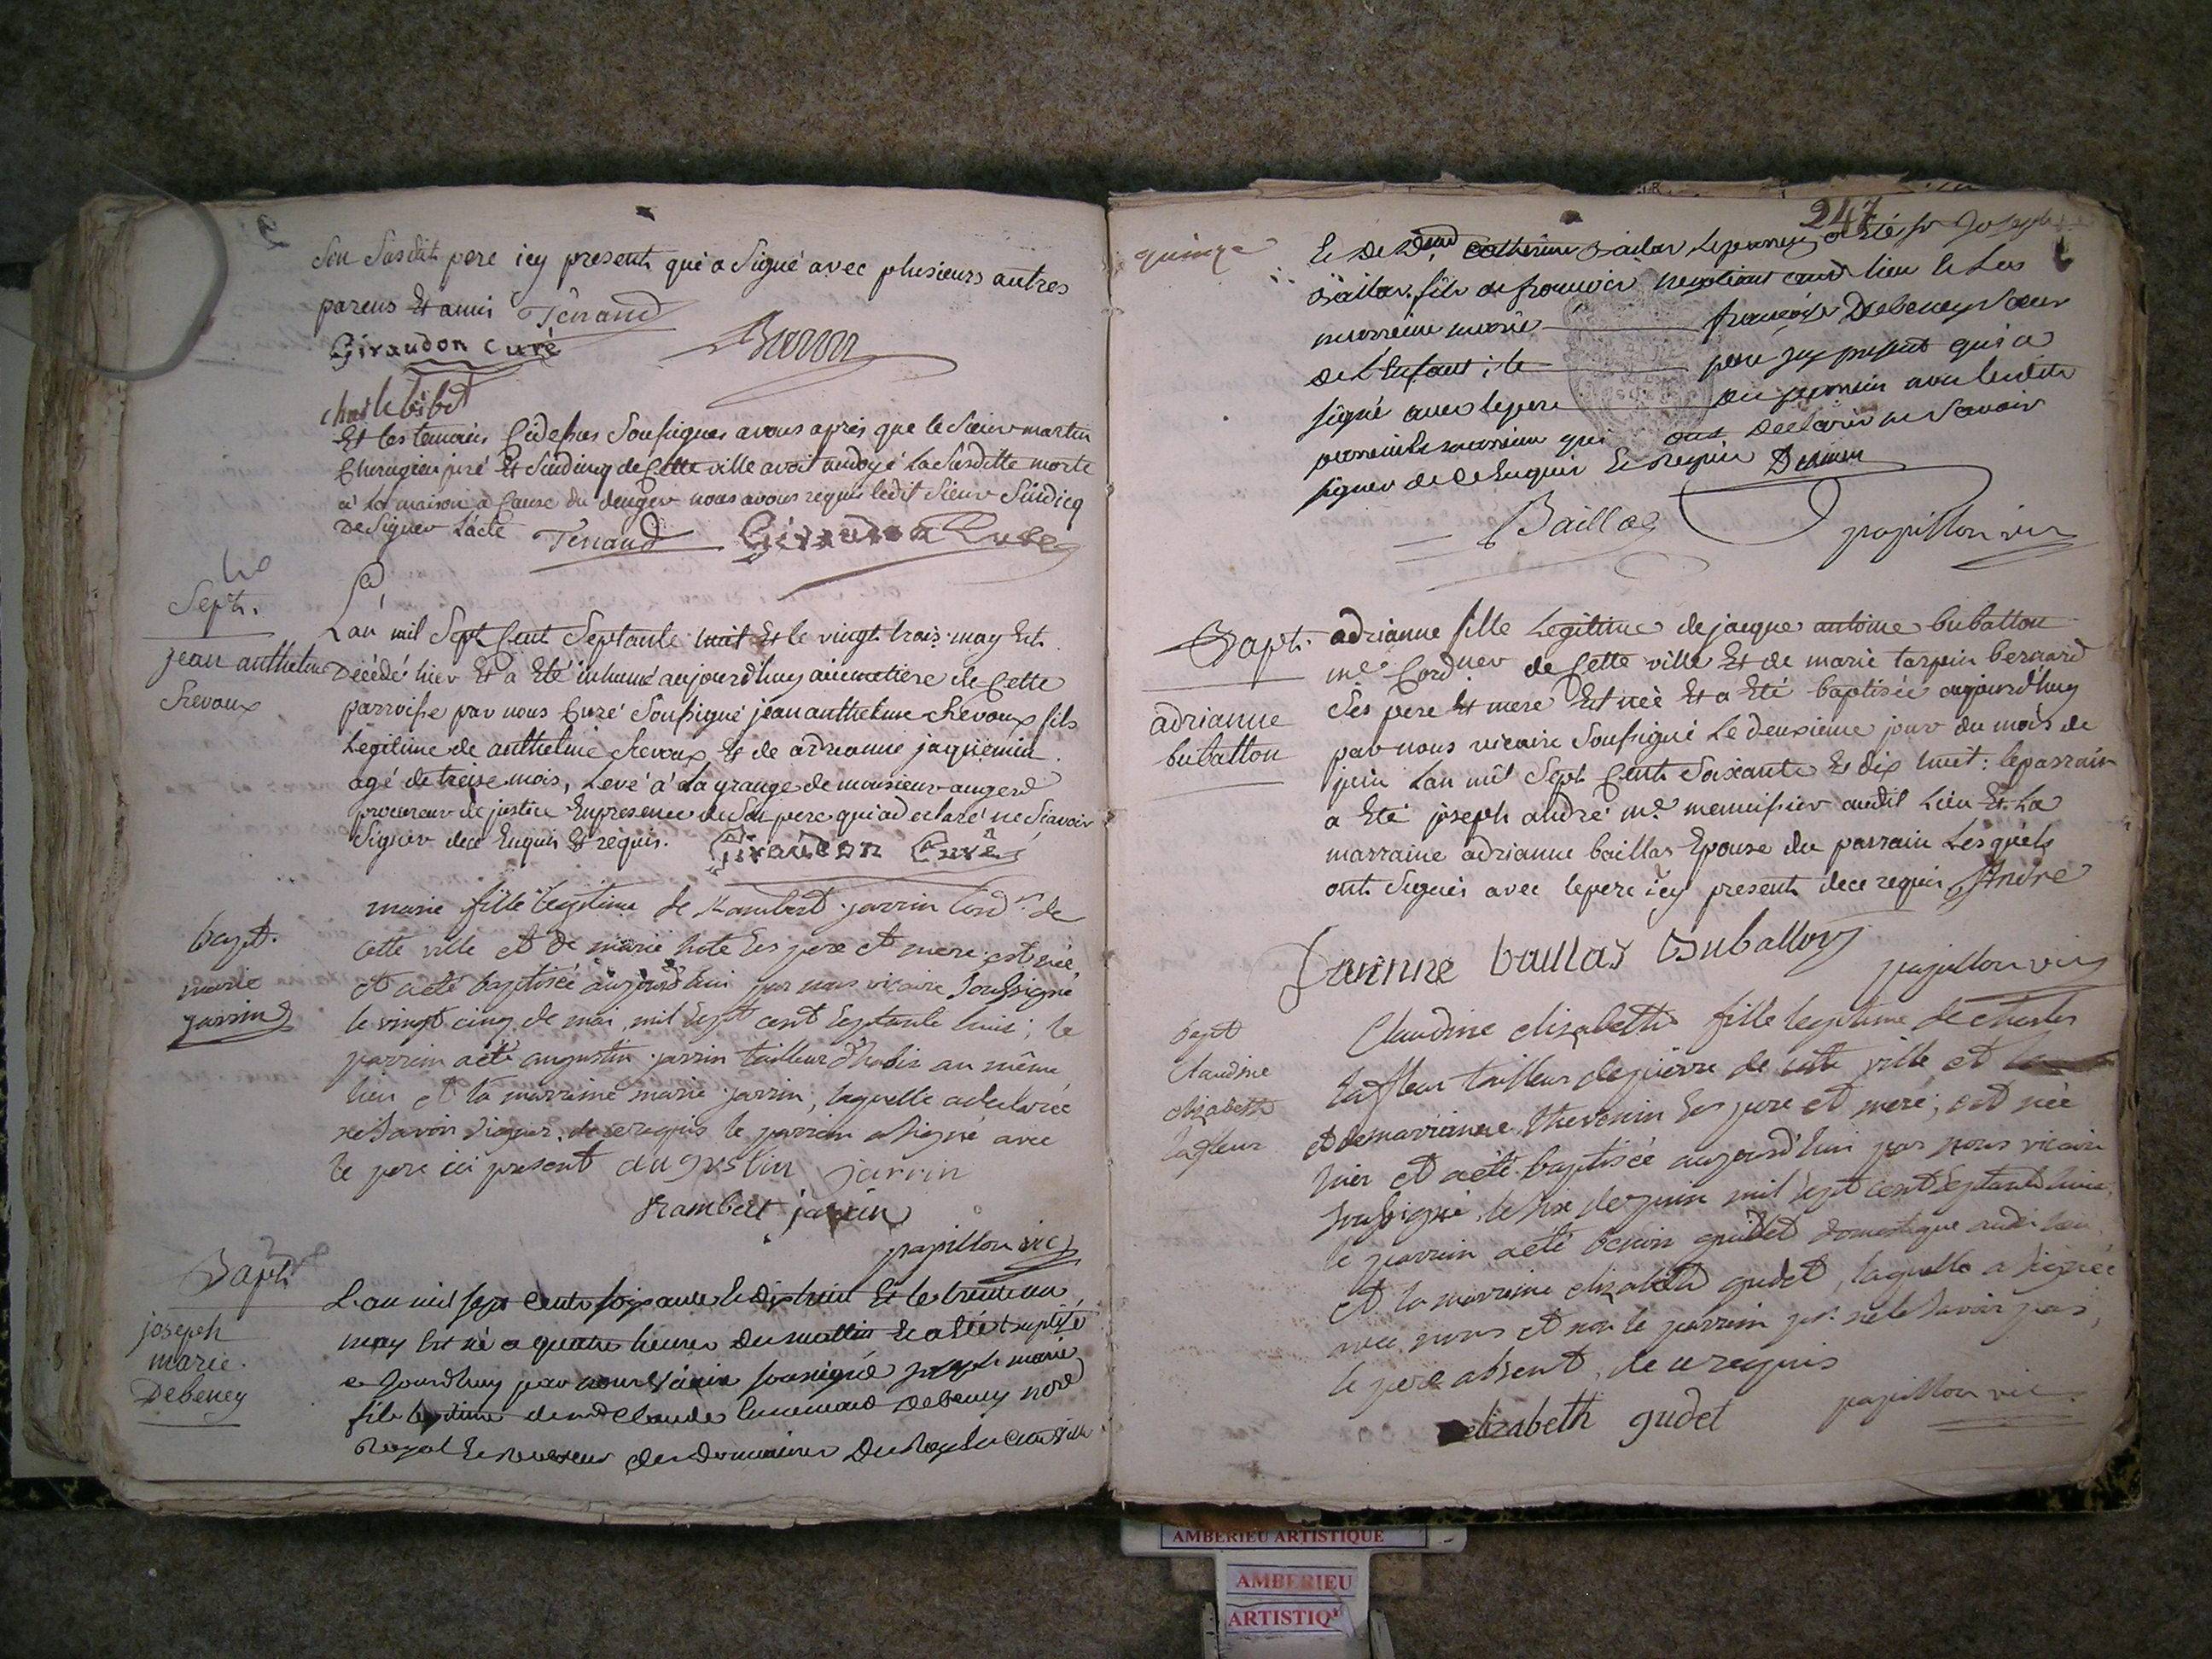 Son Susdit pere icy present qui a Signé avec plusieurs autres
parens Et amis Tenand
Giraudon curé Baron
Et les temoins Cydessus Soussignes avons apris que le Sieur martin
Chirugien juré Et Sindicq de Cette ville avoit ondoyé La Susditte morte
a La maison a Cause du danger nous avons requis ledit Sieur Sindicq
De Signer L'acte Tenand Giraudon Curé
Sept.
jean anthelme
chevoux
Lan mil Sept Cent Septante huit Et le vingt trois may Est
Décédé hier Et a Eté inhumé aujourd'huy au cimetiere de Cette
parroisse par nous Curé Soussigné jean anthelme Chevoux fils
Legitime de anthelme chevoux Et de adrianne jaquemin
agé de treise mois, Levé a La grange de monsieur auger
procureur de justice En presence de Son pere qui a declaré ne Scavoir
Signer de ce Enquis Et requis. Giraudon Curé
bapt.
marie
jarrin
marie fille legitime de Rambert jarrin Cord.r de
cette ville et de marie hote Ses pere et mere est née
et a eté baptisée aujourd'hui par nous vicaire Soussigné
le vingt cinq de mai mil Sept cent Septante huit; le
parrein a eté augustin jarrin tailleur d'habis au même
lieu et la marreine marie jarrin, laquelle a declaree
ne Savoir Signer. de ce requis le parrein a Signé avec
le pere ici present augustin jarrin
Rambert jarrin
papillon vic
Bapt.
joseph
marie
Debeney
L'an mil sept cents soixante et dix huit Et le trente un
may Est né a quatre heures du mattin Et a Eté baptisé
aujourdhuy par nous Vicaire soussigné joseph marie
fils legitime de Claude Debeney
Royal Et receveur des Domaines Du Roy En Cette Ville
247
quinze
Et de catherine Baillas Le parrein a Eté Sr Joseph
Baillas fils de françois negotiant aud lieu Et La
marreine marie françoise Debeney Soeur
de L'Enfant; le pere icy present qui a
signé avec le pere
ont Declaré ne Savoir
signer de ce Enquis Et requis
Baillas papillon vic
Bapt.
adrianne
bubatton
adrianne fille Legitime de jacque antoine bubatton
m.e Cord.nier de Cette ville Et de marie tarpin bernard
Ses pere Et mere Est née Et a Eté baptisée aujourd'huy
par nous vicaire Soussigné Le deuxieme jour du mois de
juin Lan mil Sept Cent Soixante Et dix huit: le parrain
a Eté joseph andré m.e menuisier audit Lieu Et La
marraine adrianne baillas Epouse du parrain Lesquels
ont Signés avec le pere icy present de ce requis André
baillas Bubatton
papillon vic
bapt
claudine
elizabeth
lafleur
Claudine elizabeth fille legitime de charles
lafleur tailleur de pierre de cette ville et
et de marianne thevenin Ses pere et mere; est née
hier et a eté baptisée aujourd'hui par nous vicaire
Soussigné le Six de juin mil Sept cent Septante huit
le parrain a eté benoit gudet domestique audit lieu
et la marreine elizabeth gudet, laquelle a Signée
avec nous et non le parrein pr. ne le Savoir pas,
le pere absent, de ce requis
elizabeth gudet papillon vic.
AMBERIEU ARTISTIQUE
AMBERIEU
ARTISTIQ